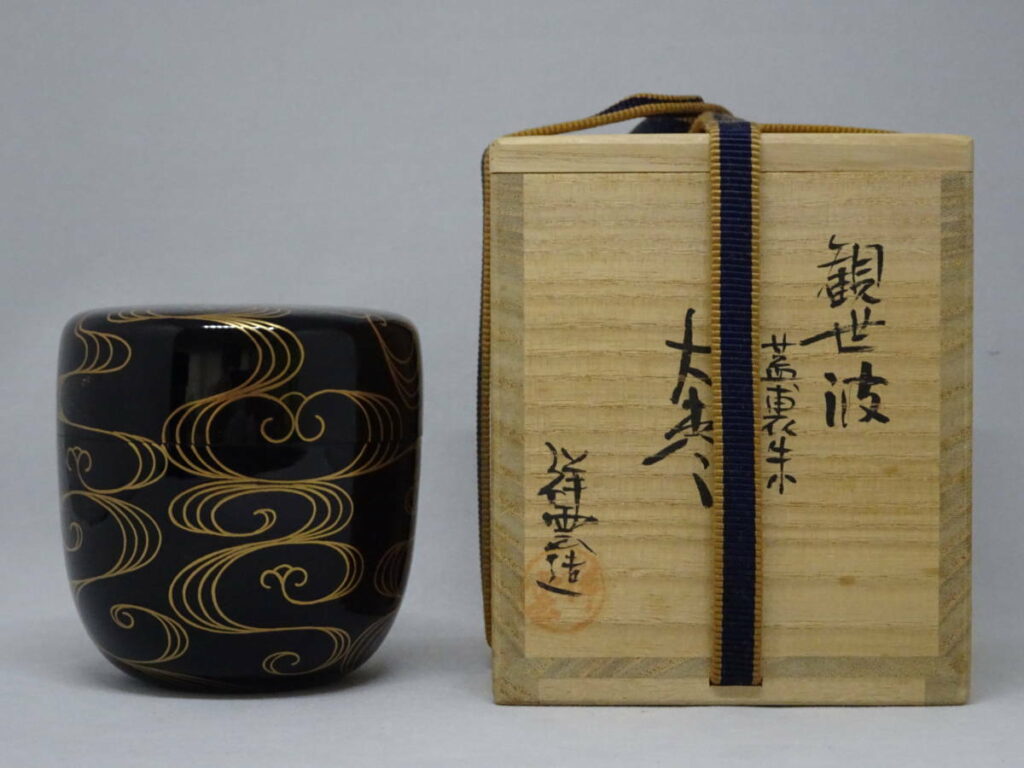 観世波
蓋裏朱
大棗
祥雲造